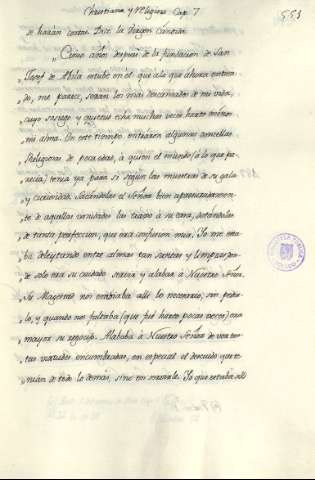 Christiana y Religiosa Cap. 7
551
"Cinco años despues de la fundacion de San
Josef de Abila estube en el que a lo que ahora entien-
do, me parece, seran los mas descansados de mi vida,
cuyo sosiego y quietud echa muchas veces harto menos
mi alma. En este tiempo entraron algunas doncellas
Religiosas de poca edad, à quien el mundo (à lo que pa-
recia) tenia ya para si segun las muestras de su gala
y curiosidad. Sacandolas el Señor bien apresuradamen-
te de aquellas vanidades las traxo à su casa, dotandolas
de tanta perfeccion, que era confusion mia. Yo me esta-
ba deleytando entre almas tan santas y limpias don-
de solo era su cuidado servir y alabar à Nuestro Señor.
Su Magestad nos embiaba alli lo necesario, sin pedir-
lo, y quando nos faltaba (que fué harto pocas veces) era
mayor su regocijo. Alababa à Nuestro Señor de ver tan-
tas virtudes encumbradas, en especial el descuido que te-
nian de todo lo demas, sino en servirle. Yo que estaba alli